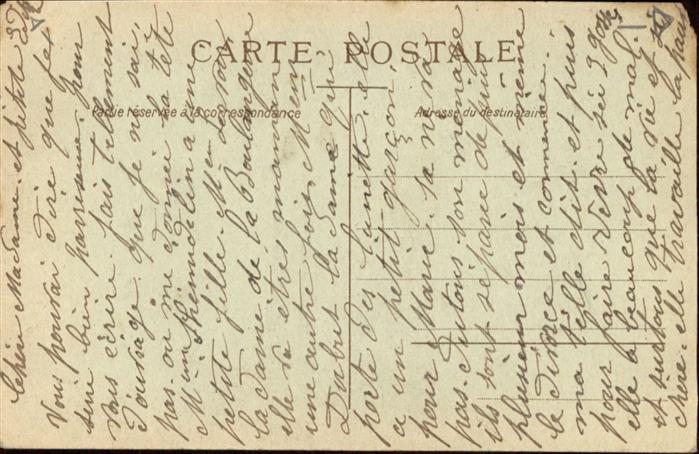 CARTE POSTALE
Partie réservée à la correspondance
Adresse du destinataire
Chère Madame et petite
Vous pouvai dire que fer
sere bien parisseuse pour
vous écrire. fais tellement
d'ouvrage que je ne sai
pas ou me donné la tête
Mme a une
petite fille. Mme
la dame de la Boulangerie
elle va êtres maman
une autre fois. Mme
Dubut la dame qui
porte des lunette. elle
a un petit garçon.
pour Marie. sa ne va
pas du tous son menage
ils sont séparé depuis
plusieur mois et même
le divorce et commencé.
ma t'elle dit. et puis
pour faire vivre sei 3 goss
elle a beaucoup de mal.
et surtous que la vie et si
chère. elle travaille la pauv